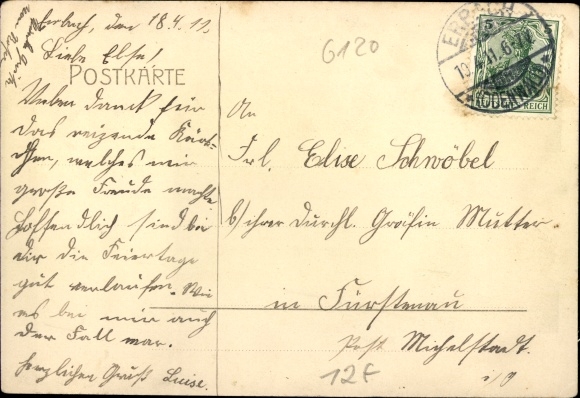 Erbach, den 18.4.11.
Liebe Else!
POSTKARTE
Vielen Dank für
das reizende Käst-
chen, welches mir
große Freude machte.
Hoffendlich sind bei
dir die Feiertage
gut verlaufen. Wie
es bei mir auch
der Fall war.
herzlichen Gruß Luise.
6120
ERBACH
19.4.11.6-7N
(ODENWALD)
REICH
An
Frl. Elise Schwöbel
b/ ihrer Durchl. Gräfin Mutter
in Fürstenau
Post Michelstadt.
i/O
12F